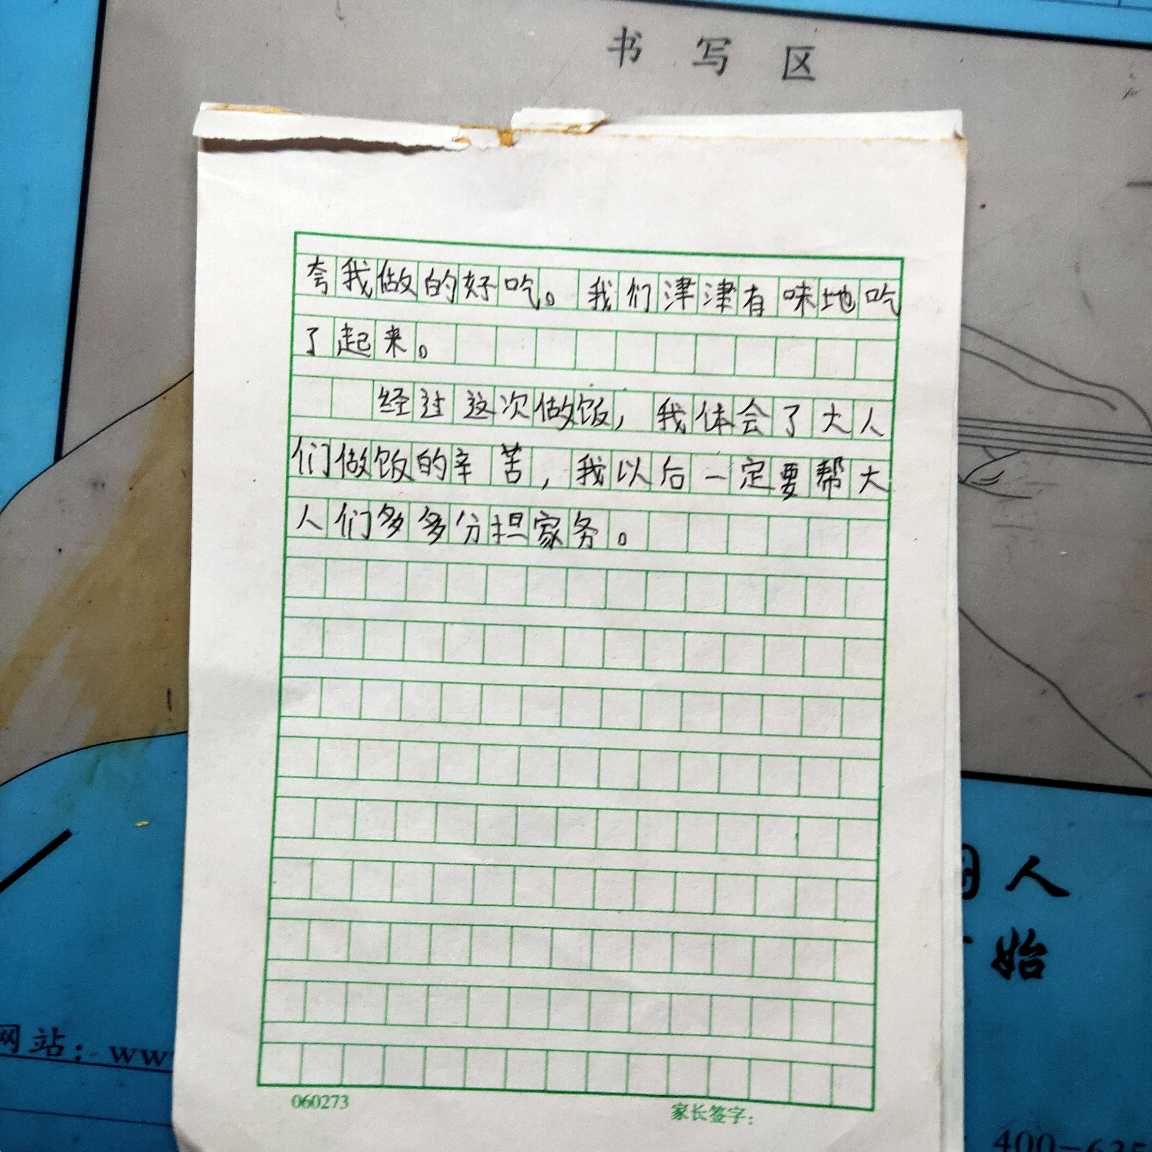 书写区
夸我做的好吃。我们津津有味地吃
了起来。
经过这次做饭，我体会了大人
们做饭的辛苦，我以后一定要帮大
人们多多分担家务。
人
始
网站：ww
060273
家长签字：
400-635